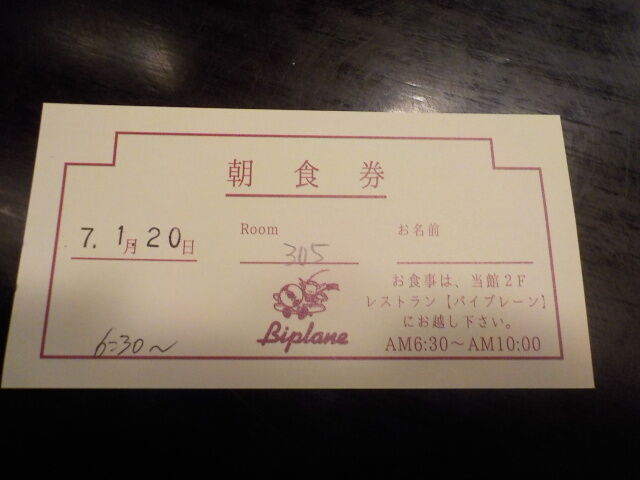 朝食券
7. 1月 20日
Room 305
お名前
Biplane
お食事は、当館2F
レストラン【バイプレーン】
にお越し下さい。
AM6:30～AM10:00
6:30～